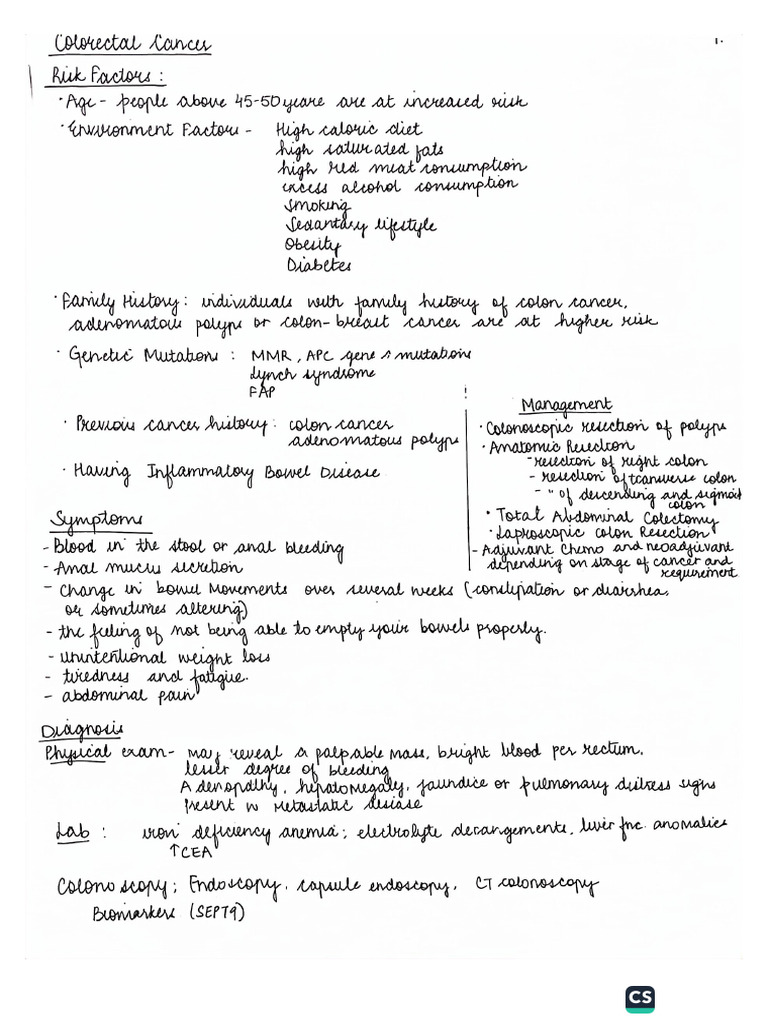 Colorectal Cancer
1.
Risk Factors :
· Age - people above 45-50 years are at increased risk
· Environment Factors - High caloric diet
high saturated fats
high red meat consumption
excess alcohol consumption
Smoking
Sedantary lifestyle
Obesity
Diabetes
· Family History : individuals with family history of colon cancer,
adenomatous polyps or colon-breast cancer are at higher risk
· Genetic Mutations : MMR, APC gene mutations
Lynch syndrome
FAP
· Previous cancer history : colon cancer
adenomatous polyps
· Having Inflammatory Bowel Disease
Management
· Colonoscopic resection of polyps
· Anatomic Resection
- resection of right colon
- resection of transverse colon
- " of descending and sigmoid
colon
· Total Abdominal Colectomy
· Laproscopic colon Resection
- Adjuvant Chemo and neoadjuvant
depending on stage of cancer and
requirement
Symptoms
- Blood in the stool or anal bleeding
- Anal mucus secretion
- Change in bowel movements over several weeks (constipation or diarrhea,
or sometimes altering)
- the feeling of not being able to empty your bowels properly.
- unintentional weight loss
- tiredness and fatigue.
- abdominal pain
Diagnosis
Physical exam - may reveal a palpable mass, bright blood per rectum,
lesser degree of bleeding
Adenopathy, hepatomegaly, jaundice or pulmonary distress signs
present in metastatic disease
Lab : iron deficiency anemia ; electrolyte derangements, liver fnc. anomalies
↑CEA
Colonoscopy ; Endoscopy, capsule endoscopy, CT colonoscopy
Biomarkers (SEPT9)
CS